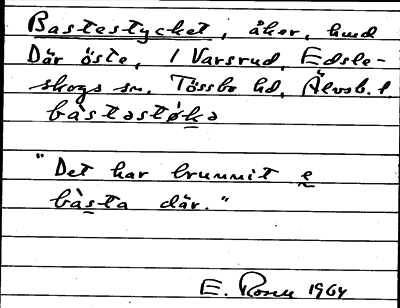 Bastestycket, åker, hmd
Där öste, 1 Varsrud, Edsle-
skogs sn. Tössbo hd, Älvsb. l.
bàstəstøkə
"Det har brunnit e
bàsta där."
E. Rosen 1964